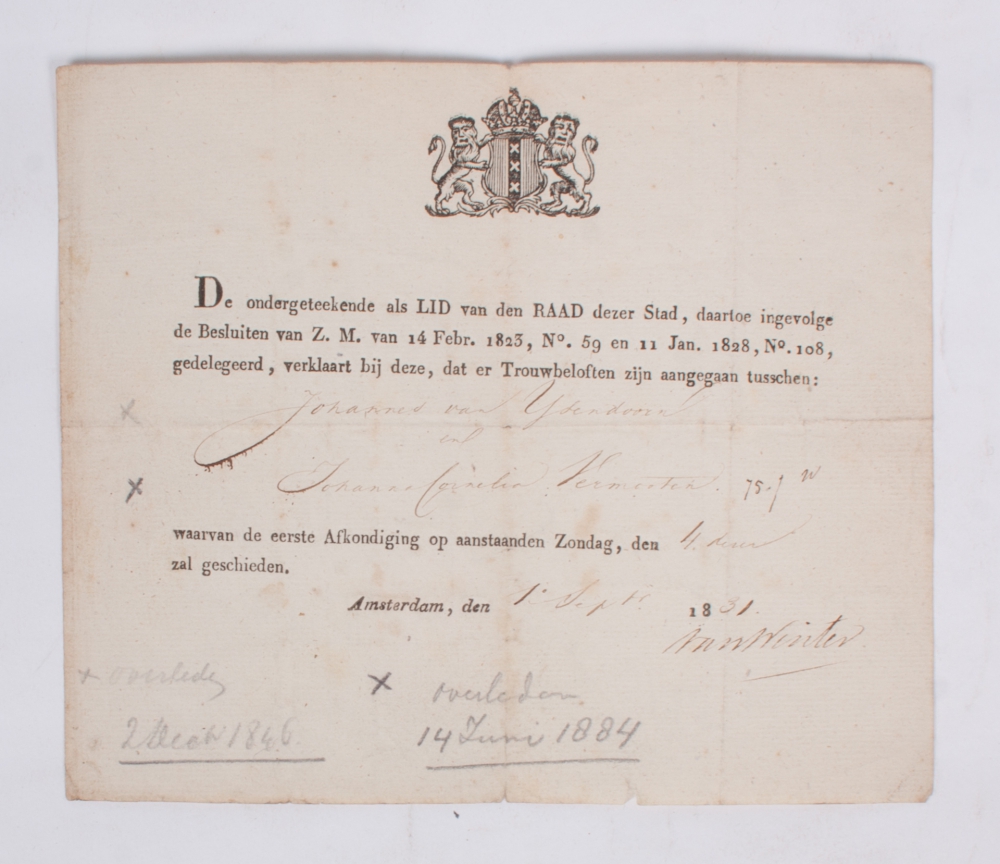 De ondergeteekende als LID van den RAAD dezer Stad, daartoe ingevolge
de Besluiten van Z. M. van 14 Febr. 1823, No. 59 en 11 Jan. 1828, No. 108,
gedelegeerd, verklaart bij deze, dat er Trouwbeloften zijn aangegaan tusschen:
x Johannes van Ysendoorn
en
x Johanna Cornelia Vermorten.
waarvan de eerste Afkondiging op aanstaanden Zondag, den 4. dezer
zal geschieden.
Amsterdam, den 1e Septr. 1831.
van Winter
x overleden x overleden
1846 14 Juni 1884